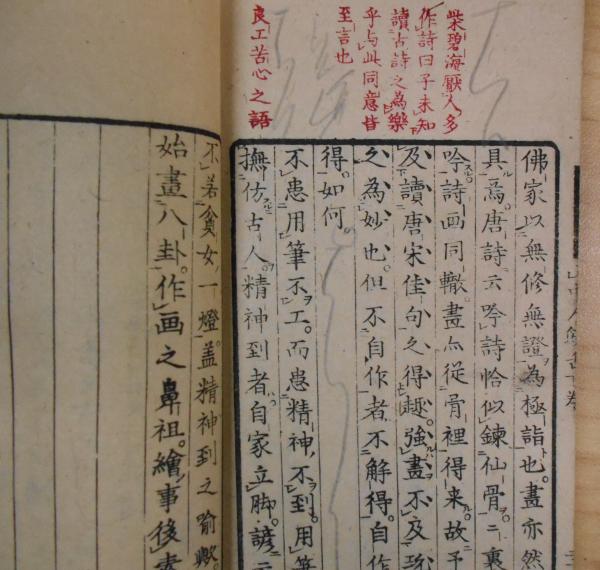 柴碧海厭人多
作詩曰予未知
讀古詩之為樂
乎与此同意皆
至言也
良工苦心之語
佛家以無修無證為極詣也。畫亦然
具焉。唐詩云吟詩恰似鍊仙骨。裏
吟詩画同轍。畫亦従骨裡得来。故予
及讀唐宋佳句之得趣。強畫不及
之為妙也。但不自作者不解得。自作
得。如何。
不患用筆不工。而患精神不到。用筆
撫仿古人。精神到者自家立脚。諺云
不若貧女一燈。盖精神到之喻歟。
始畫八卦。作画之鼻祖。繪事後素